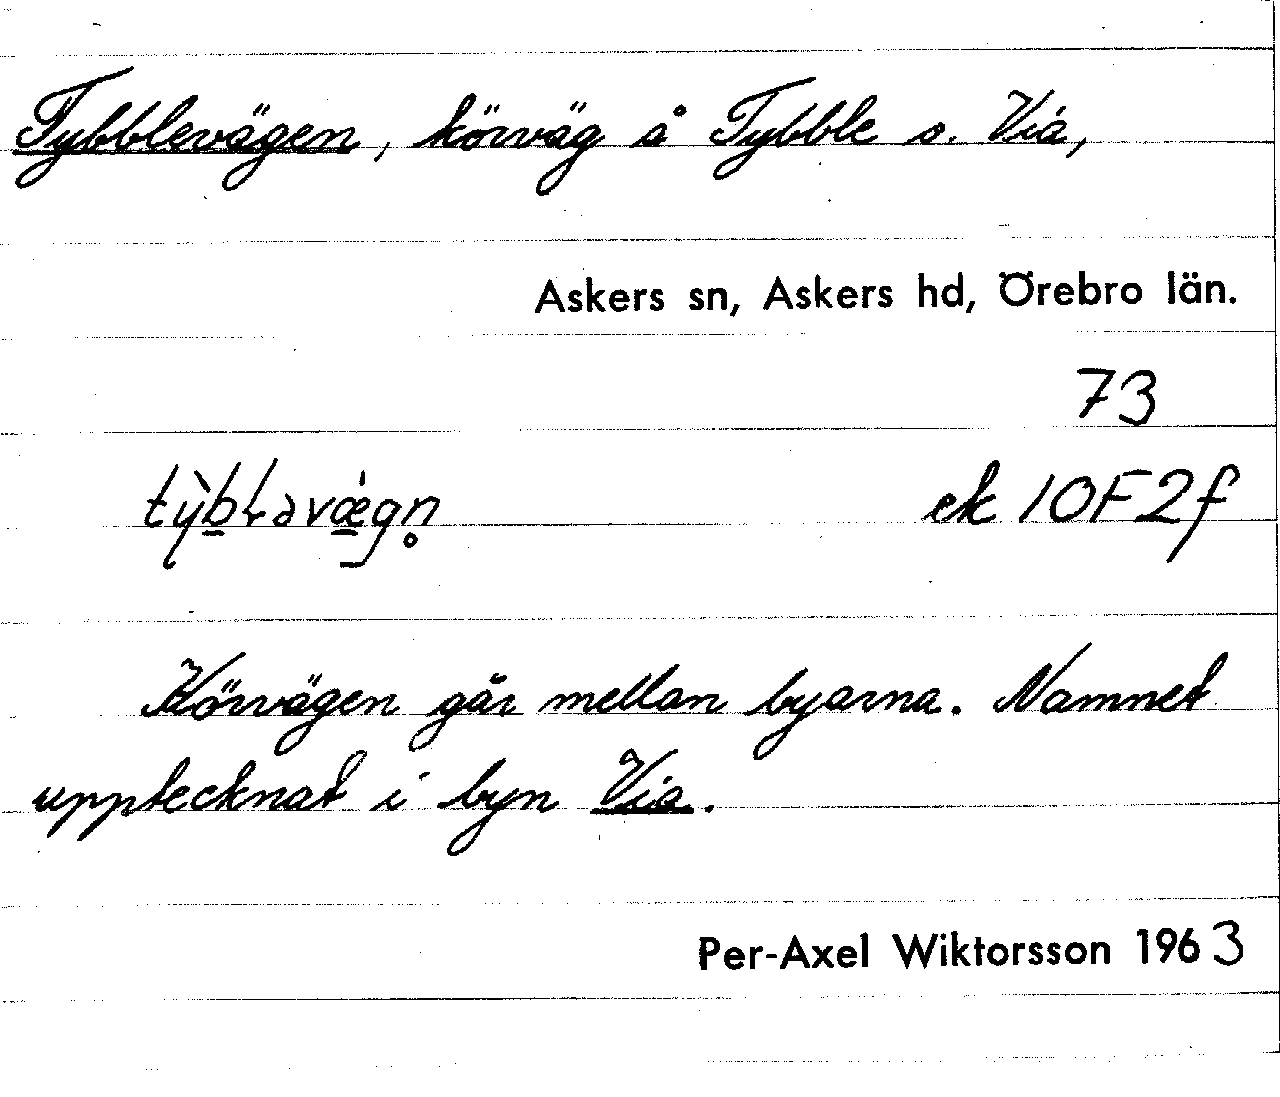 Tybblevägen, körväg å Tybble o. Via,
Askers sn, Askers hd, Örebro län.
73
ek 10F2f
Körvägen går mellan byarna. Namnet
upptecknat i byn Via.
Per-Axel Wiktorsson 1963